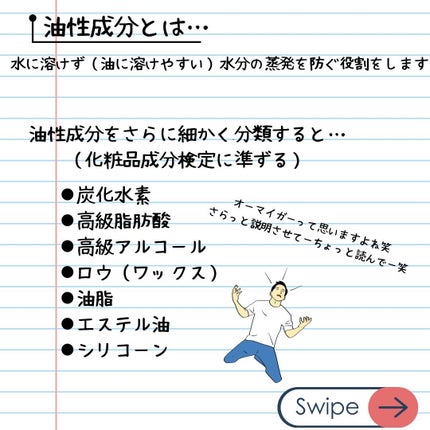 油性成分とは…
水に溶けず（油に溶けやすい）水分の蒸発を防ぐ役割をします
油性成分をさらに細かく分類すると…
（化粧品成分検定に準ずる）
●炭化水素
●高級脂肪酸
●高級アルコール
●ロウ（ワックス）
●油脂
●エステル油
●シリコーン
オーマイガーって思いますよね笑
さらっと説明させてーちょっと読んでー笑
Swipe